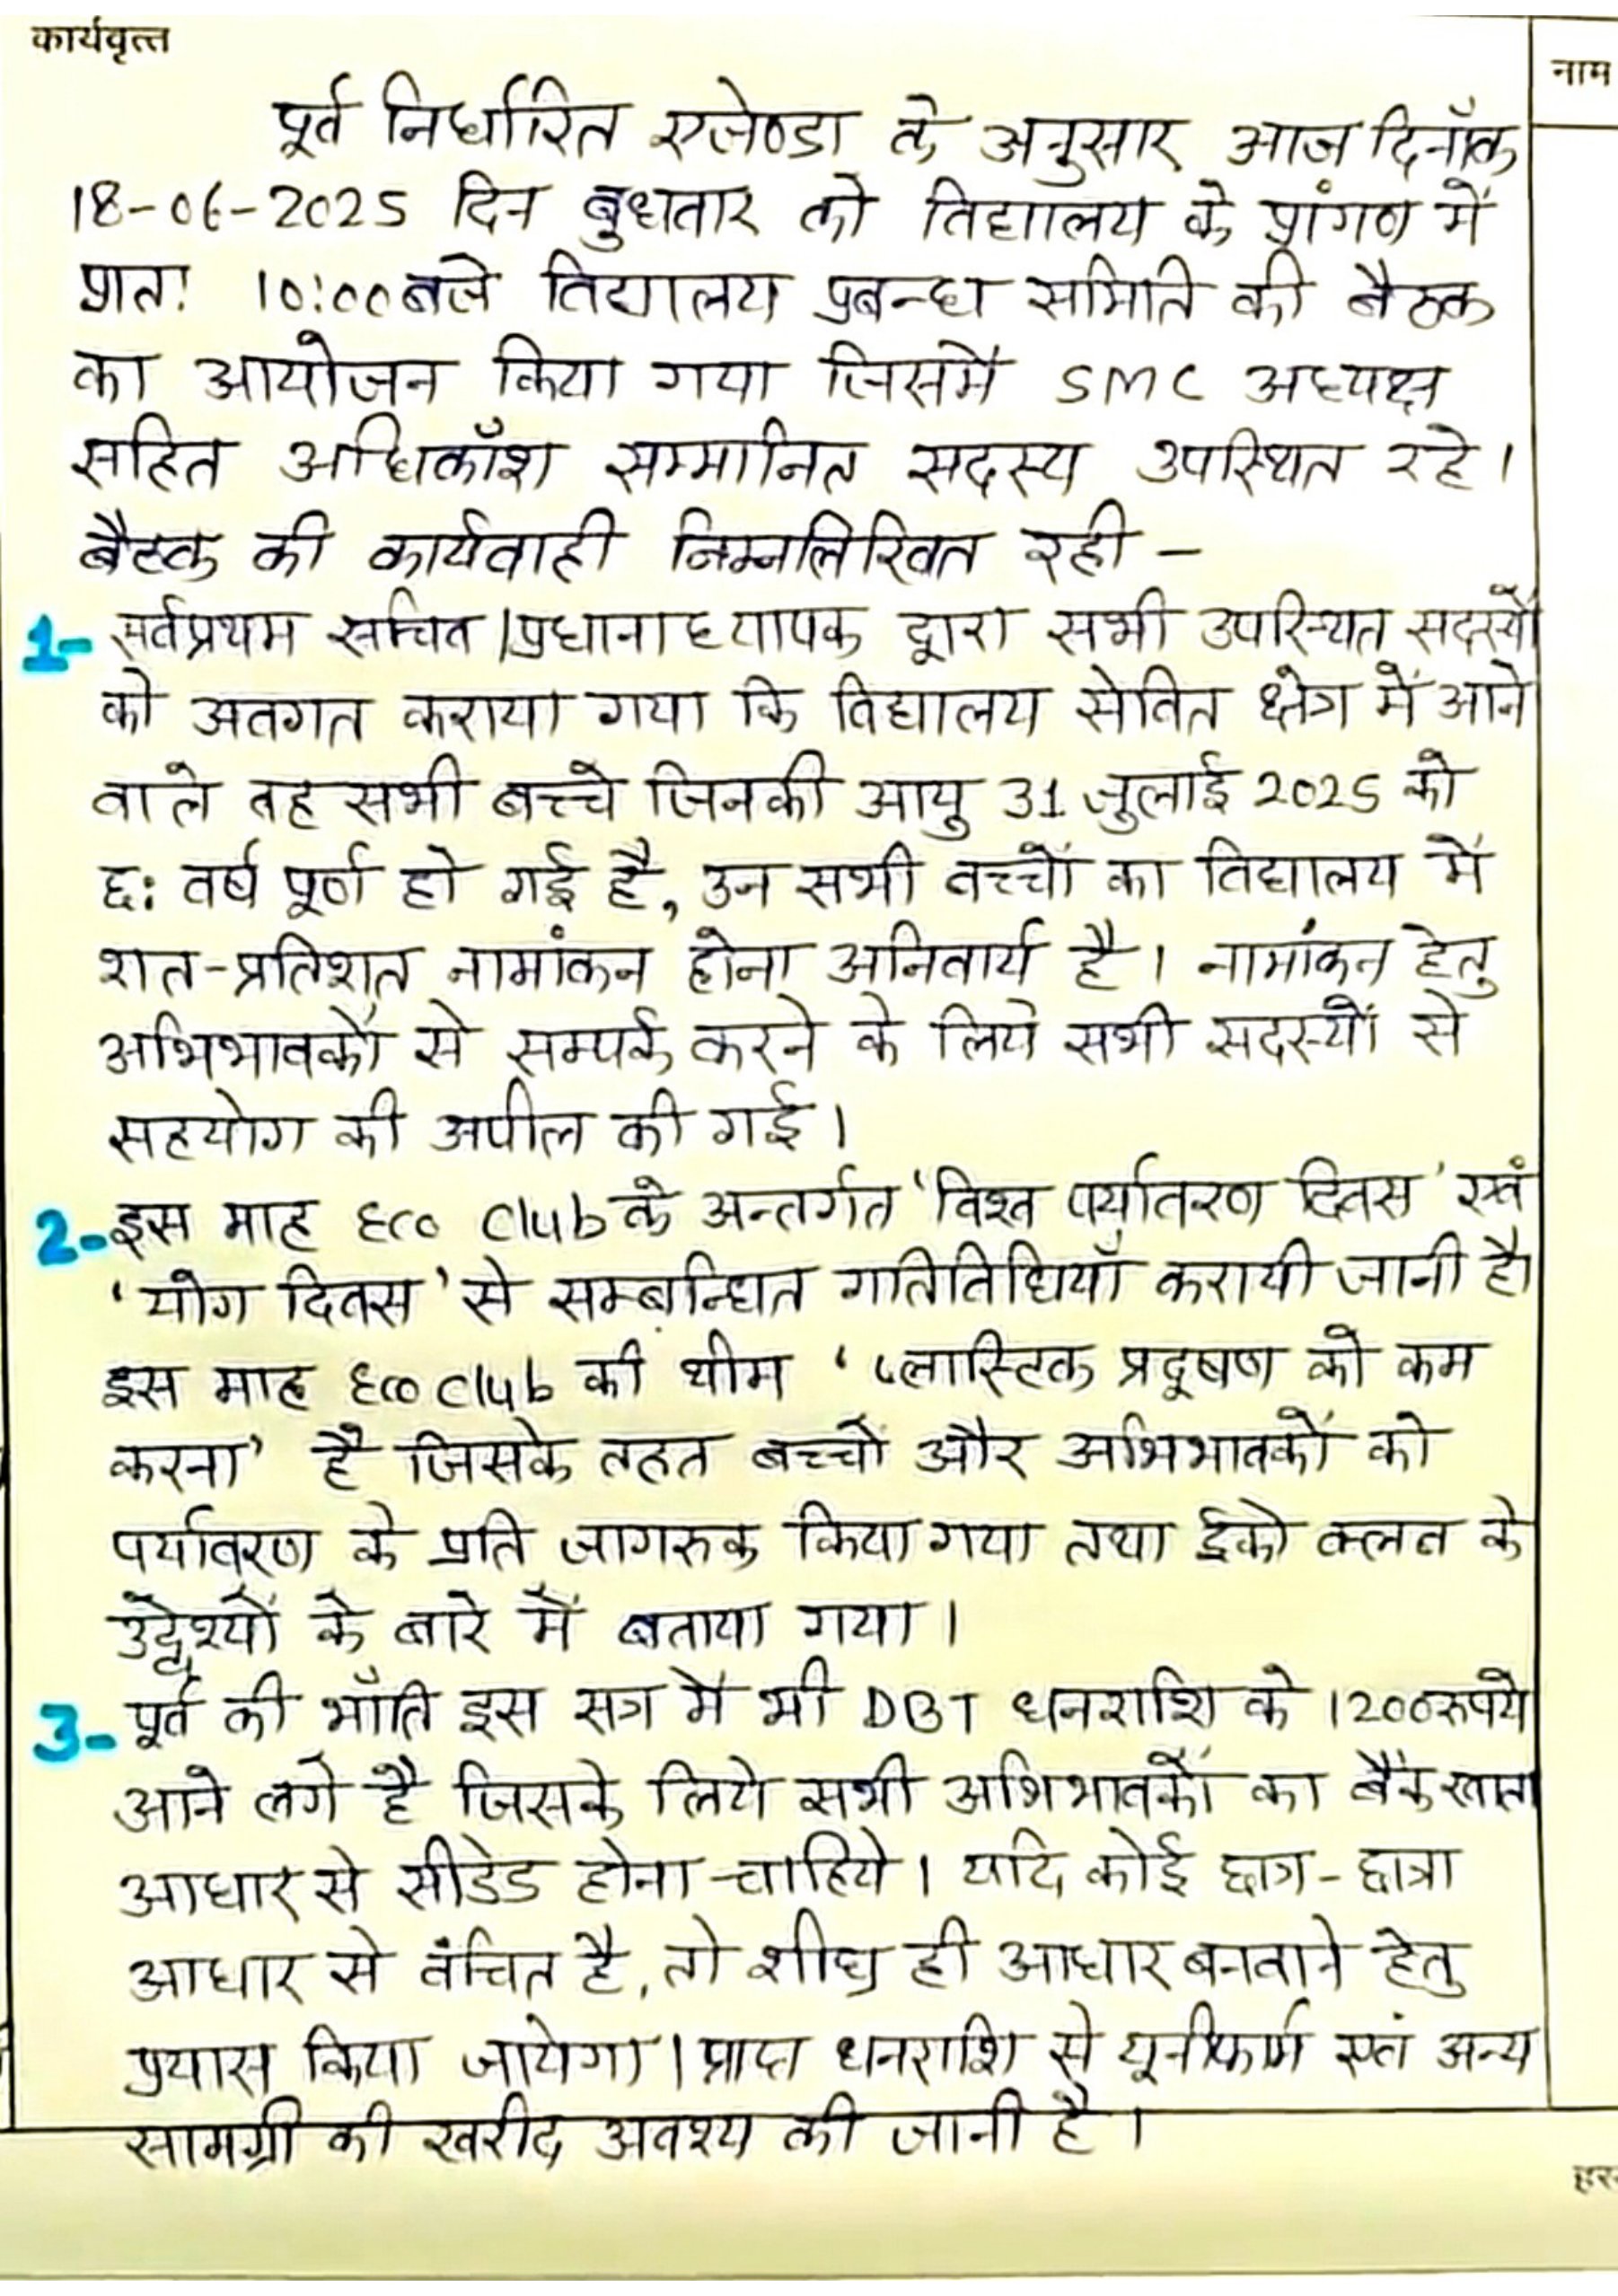 कार्यवृत्त
नाम
पूर्व निर्धारित एजेण्डा के अनुसार आज दिनाँक
18-06-2025 दिन बुधवार को विद्यालय के प्रांगण में
प्रातः 10:00 बजे विद्यालय प्रबन्ध समिति की बैठक
का आयोजन किया गया जिसमें SMC अध्यक्ष
सहित अधिकाँश सम्मानित सदस्य उपस्थित रहे।
बैठक की कार्यवाही निम्नलिखित रही –
1- सर्वप्रथम सचिव/प्रधानाध्यापक द्वारा सभी उपस्थित सदस्यों
को अवगत कराया गया कि विद्यालय सेवित क्षेत्र में आने
वाले वह सभी बच्चे जिनकी आयु 31 जुलाई 2025 को
छः वर्ष पूर्ण हो गई है, उन सभी बच्चों का विद्यालय में
शत-प्रतिशत नामांकन होना अनिवार्य है। नामांकन हेतु
अभिभावकों से सम्पर्क करने के लिये सभी सदस्यों से
सहयोग की अपील की गई।
2- इस माह Eco Club के अन्तर्गत 'विश्व पर्यावरण दिवस' एवं
'योग दिवस' से सम्बन्धित गतिविधियाँ करायी जानी है।
इस माह Eco Club की थीम 'प्लास्टिक प्रदूषण को कम
करना' है जिसके तहत बच्चों और अभिभावकों को
पर्यावरण के प्रति जागरुक किया गया तथा ईको क्लब के
उद्देश्यों के बारे में बताया गया।
3- पूर्व की भाँति इस सत्र में भी DBT धनराशि के 1200 रुपये
आने लगे है जिसके लिये सभी अभिभावकों का बैंक खाता
आधार से सीडेड होना चाहिये। यदि कोई छात्र-छात्रा
आधार से वंचित है, तो शीघ्र ही आधार बनवाने हेतु
प्रयास किया जायेगा। प्राप्त धनराशि से यूनीफार्म एवं अन्य
सामग्री की खरीद अवश्य की जानी है।